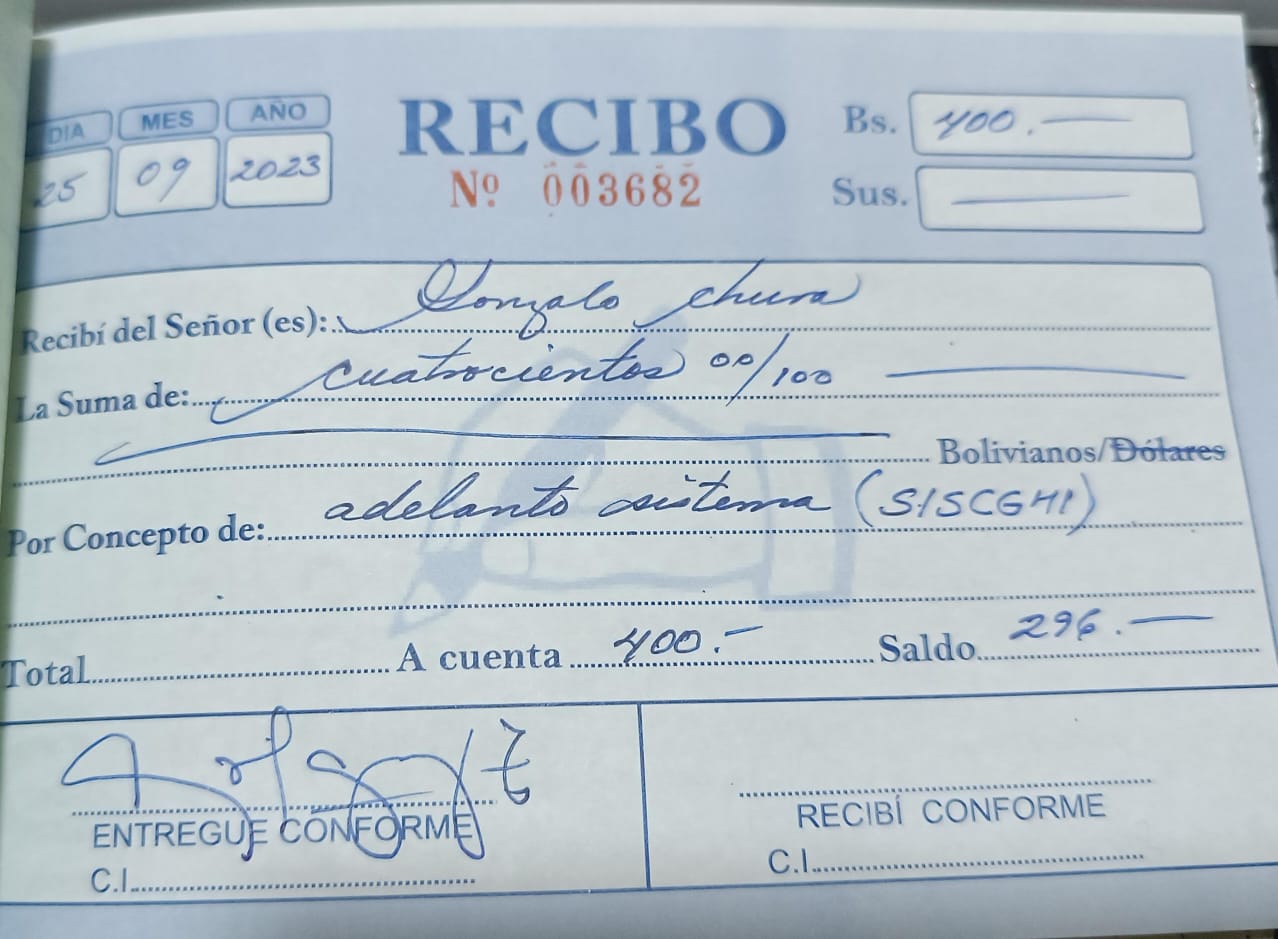 DIA MES AÑO
25 09 2023
RECIBO
Nº 003682
Bs. 400.—
Sus. —
Recibí del Señor (es): Gonzalo Chura
La Suma de: cuatrocientos 00/100
Bolivianos/Dólares
Por Concepto de: adelanto sistema (SISCGHI)
Total A cuenta 400.- Saldo 296.—
ENTREGUE CONFORME
C.I.
RECIBÍ CONFORME
C.I.